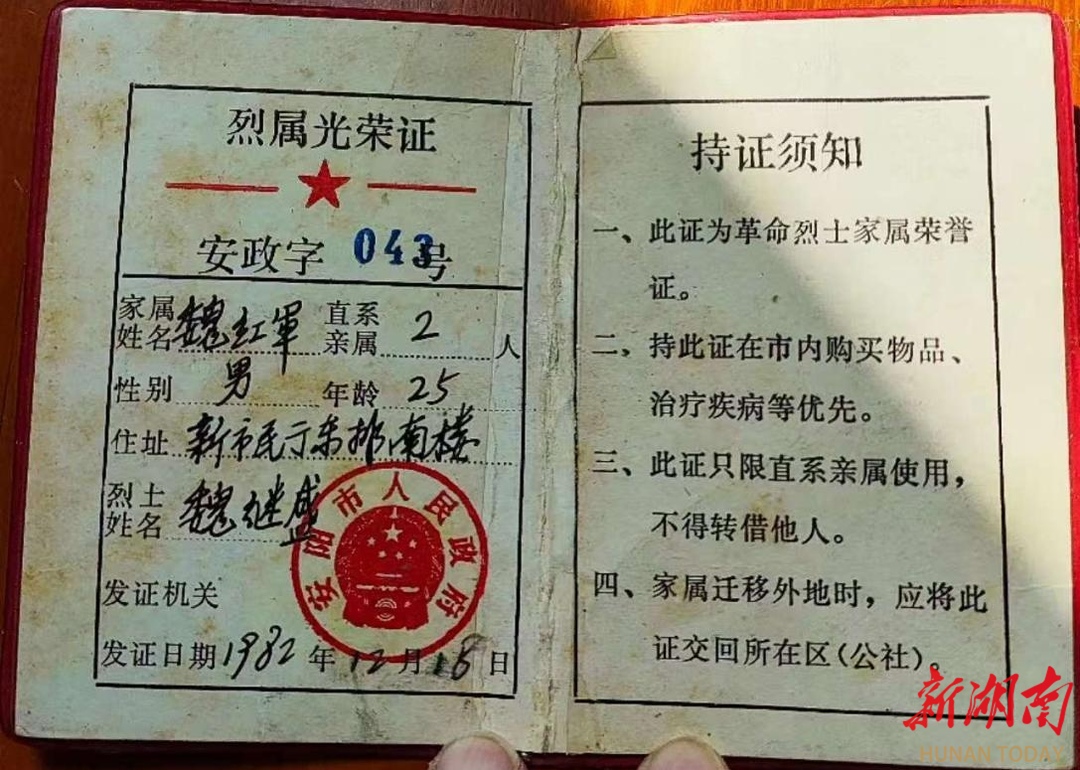 烈属光荣证
安政字 043号
家属姓名 魏红军 直系亲属 2 人
性别 男 年龄 25
住址 新市民亍东排南楼
烈士姓名 魏继盛
安阳市人民政府
发证机关
发证日期 1982 年 12 月 18 日
持证须知
一、此证为革命烈士家属荣誉
证。
二、持此证在市内购买物品、
治疗疾病等优先。
三、此证只限直系亲属使用，
不得转借他人。
四、家属迁移外地时，应将此
证交回所在区(公社)。
新湖南
HUNAN TODAY